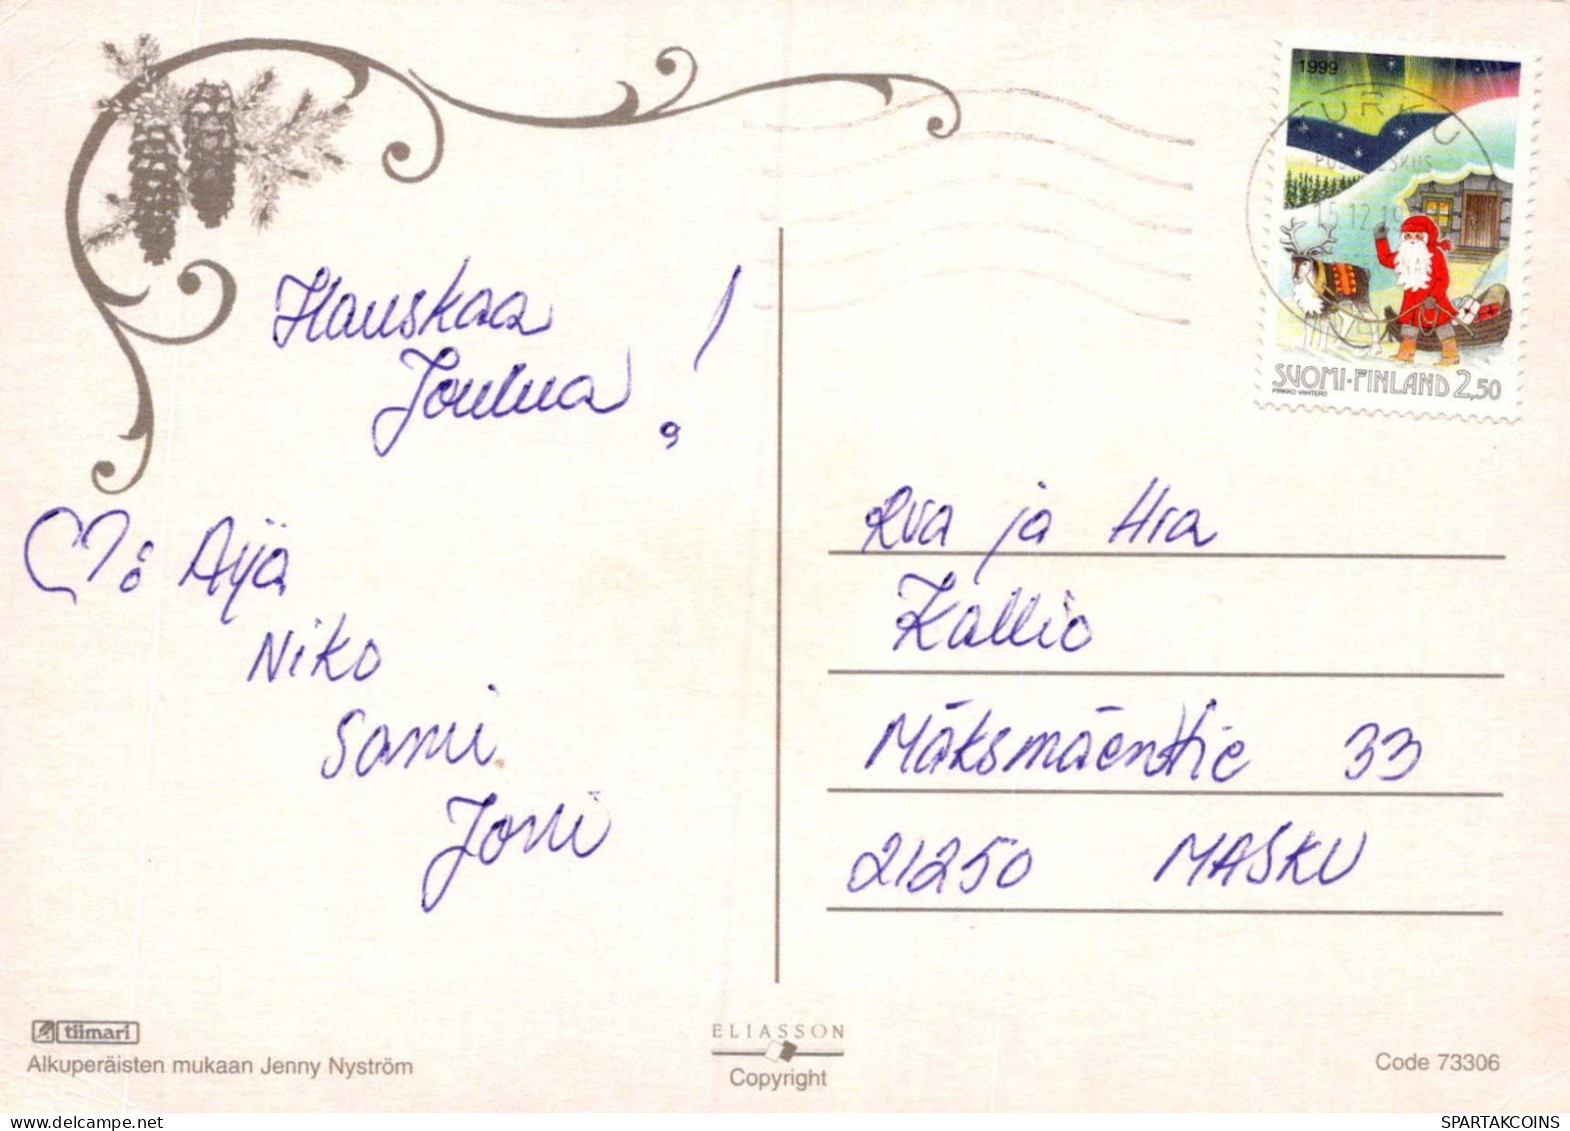 1999
TURKU
15.12.19
SUOMI·FINLAND 2,50
PIRKKO VAHTERO
Hauskaa
Joulua!
Äijä
Niko
Sami
Joni
Rva ja Hra
Kallio
Mäksmäentie 33
21250 MASKU
tiimari
Alkuperäisten mukaan Jenny Nyström
ELIASSON
Copyright
Code 73306
SPARTAKCOINS.COM